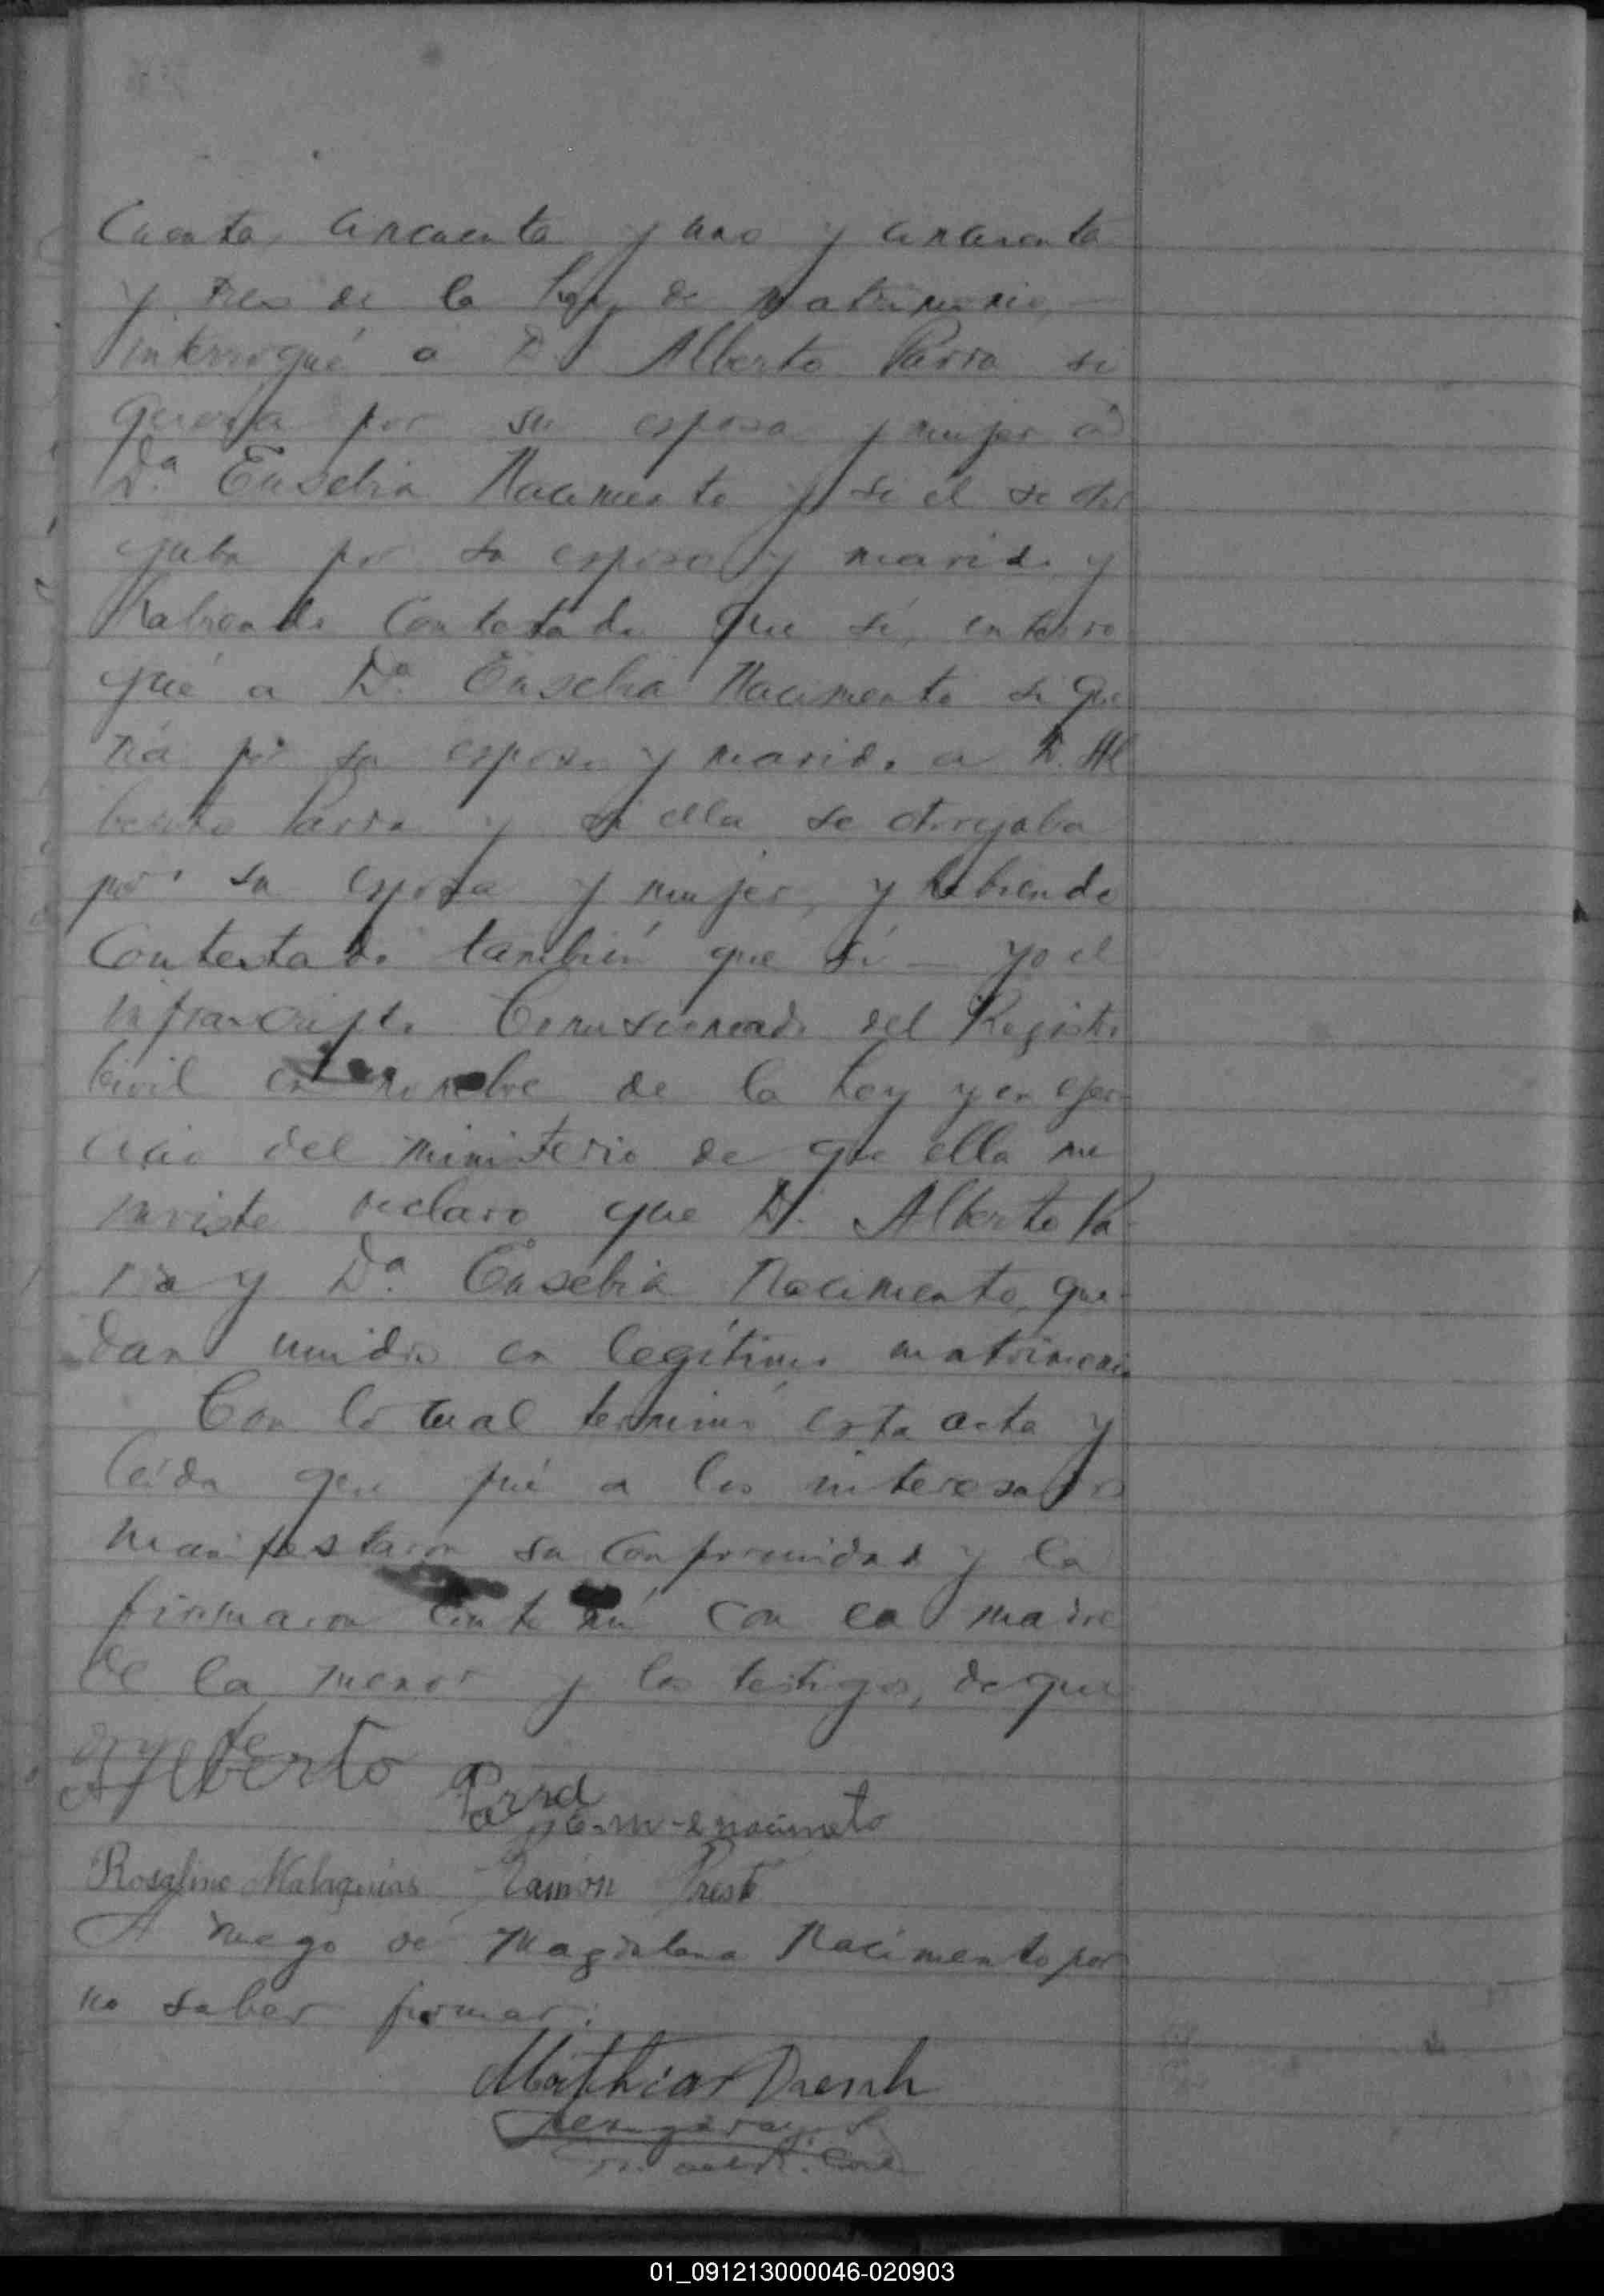 cuenta, cincuenta y uno y cincuenta
y tres de la Ley de matrimonio,
interrogué a D. Alberto Parra si
quería por su esposa y mujer a
Dª Eusebia Nacimento y si él se otor
gaba por su esposo y marido y
habiendo contestado que sí, interro
gué a Dª Eusebia Nacimento si que
ría por su esposo y marido a D. Al
berto Parra y si ella se otorgaba
por su esposa y mujer, y habiendo
contestado también que sí — yo el
infrascripto Comisionado del Registro
Civil en nombre de la Ley y en ejer-
cicio del ministerio de que ella me
inviste declaro que D. Alberto Pa-
rra y Dª Eusebia Nacimento, que-
dan unidos en legítimo matrimonio
Con lo cual terminó esta acta y
leída que fué a los interesados
manifestaron su conformidad y la
firmaron ante mí con la madre
de la menor y los testigos, de que
Alberto Parra
nacimeto
Rosalino Malaquias Ramón Prest
A ruego de Magdalena Nacimento por
no saber firmar:
Mathias